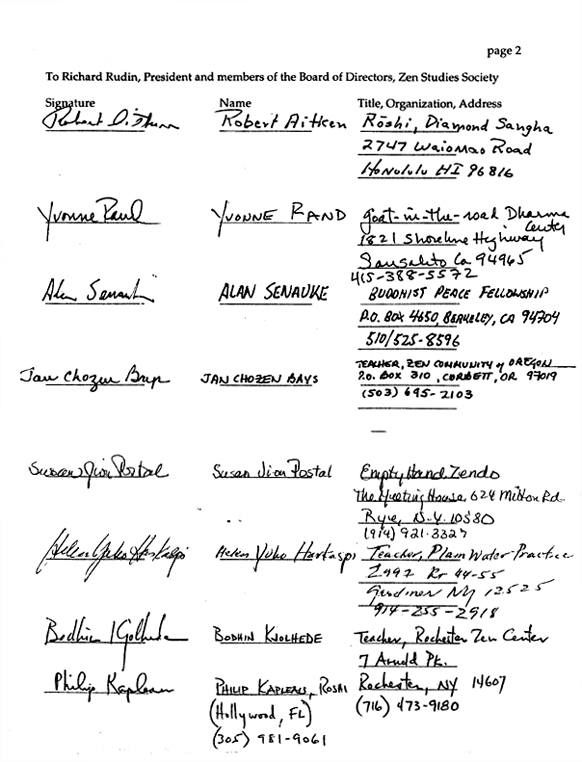 page 2
To Richard Rudin, President and members of the Board of Directors, Zen Studies Society
Signature Name Title, Organization, Address
Robert Aitken Rōshi, Diamond Sangha
2747 Waiomao Road
Honolulu HI 96816
Yvonne Rand YVONNE RAND Goat-in-the-road Dharma
Center
1821 Shoreline Highway
Sausalito Ca 94965
415-388-5572
Alan Senauke ALAN SENAUKE BUDDHIST PEACE FELLOWSHIP
P.O. BOX 4650, BERKELEY, CA 94704
510/525-8596
Jan Chozen Bays JAN CHOZEN BAYS TEACHER, ZEN COMMUNITY of OREGON
P.O. BOX 310, CORBETT, OR 97019
(503) 695-2103
Susan Jion Postal Susan Jion Postal Empty Hand Zendo
The Meeting House, 624 Milton Rd.
Rye, N.Y. 10580
(914) 921-3327
Helen Yuho Harkaspi Helen Yuho Harkaspi Teacher, Plain Water Practice
Rt 44-55
Gardiner NY 12525
914-255-2918
Bodhin Kjolhede BODHIN KJOLHEDE Teacher, Rochester Zen Center
7 Arnold Pk.
Philip Kapleau PHILIP KAPLEAU, ROSHI Rochester, NY 14607
(Hollywood, FL) (716) 473-9180
(305) 981-9061